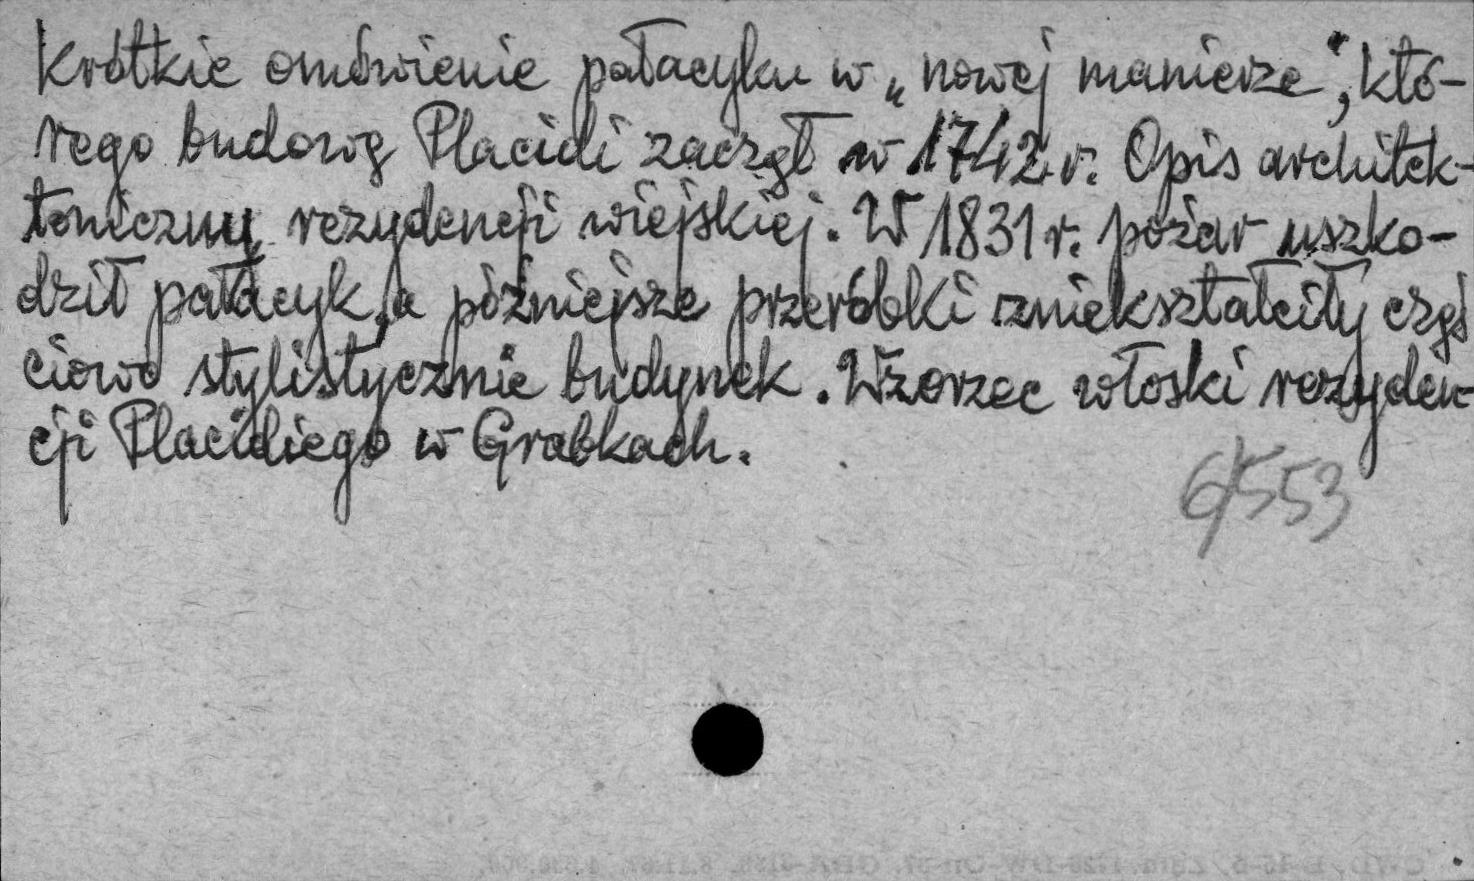 Krótkie omówienie pałacyku w „nowej manierze", któ-
rego budowę Placidi zaczął w 1742 r. Opis architek-
toniczny rezydencji wiejskiej. W 1831 r. pożar uszko-
dził pałacyk, a późniejsze przeróbki zniekształciły częś
ciowo stylistycznie budynek. Wzorzec włoski rezyden-
cji Placidiego w Grabkach.
6/553